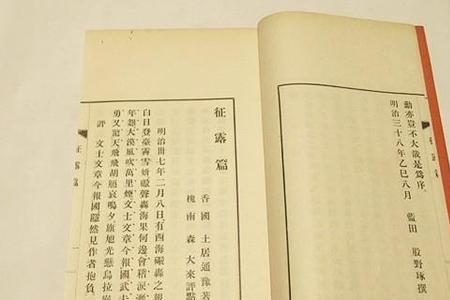 勳亦豈不大哉是爲序
明治三十八年乙巳八月　藍田　股野琢撰
征露篇
香國　土居通豫著
槐南　森　大來評點
明治卅七年二月八日有西海礮轟之報
白日登臺霧雪妍礮聲轟海果何邊會稽淚
年怨大漠風吹萬里煙文士文章今報國武夫
勇又驚天飛飛胡雁哀鳴夕旗旭光懸烏拉
評　文士文章今報國隱然見作者抱負
征露篇